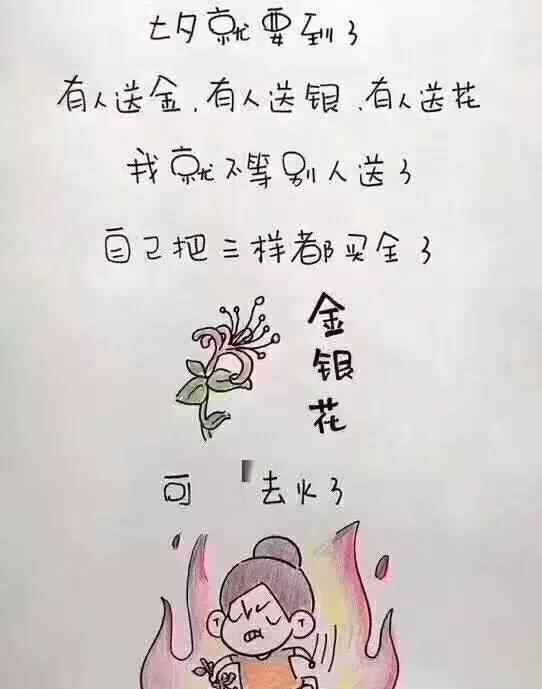 七夕就要到了
有人送金、有人送银、有人送花
我就不等别人送了
自己把三样都买全了
金银花
可 去火了